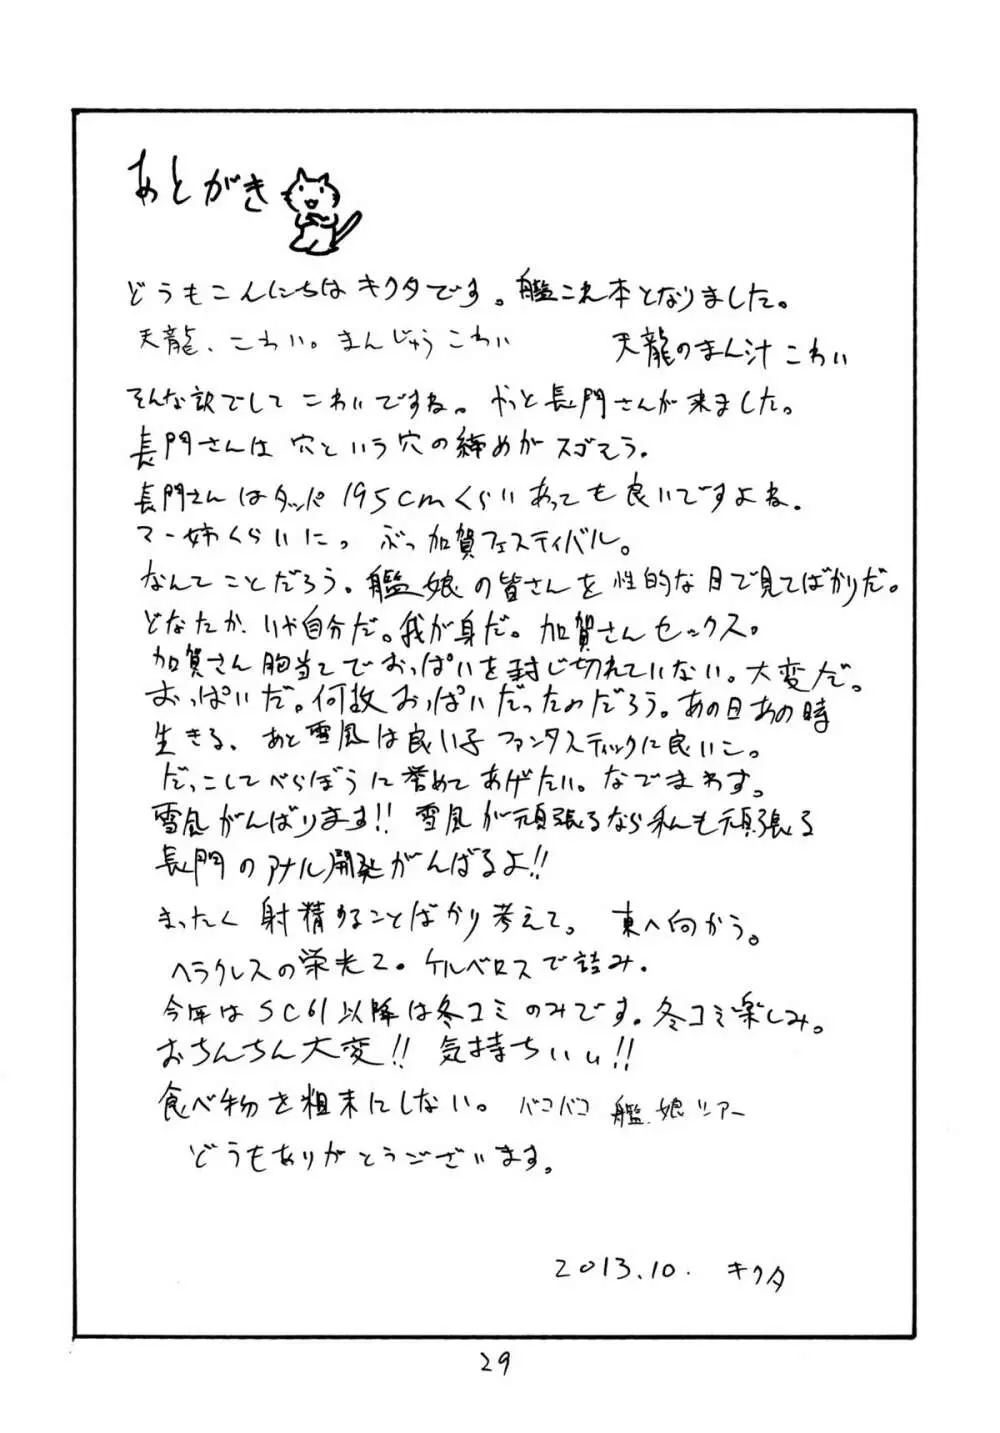 あとがき
どうもこんにちはキクタです。艦これ本となりました。
天龍、こわい。まんじゅうこわい 天龍のまん汁こわい
そんな訳でしてこわいですね。やっと長門さんが来ました。
長門さんは穴という穴の締めがスゴそう。
長門さんはタッパ195cmくらいあっても良いですよね。
マー姉くらいに。ぶっ加賀フェスティバル。
なんてことだろう。艦娘の皆さんを性的な目で見てばかりだ。
どなたか、いや自分だ。我が身だ。加賀さんセックス。
加賀さん胸当てでおっぱいを封じ切れていない。大変だ。
おっぱいだ。何故おっぱいだったのだろう。あの日あの時
生きる、あと雪風は良い子ファンタスティックに良いこ。
だっこしてべらぼうに誉めてあげたい。なでまわす。
雪風がんばります!! 雪風が頑張るなら私も頑張る
長門のアナル開発がんばるよ!!
まったく射精することばかり考えて。東へ向かう。
ヘラクレスの栄光2。ケルベロスで詰み。
今年はSC61以降は冬コミのみです。冬コミ楽しみ。
おちんちん大変!! 気持ちいい!!
食べ物を粗末にしない。バコバコ艦娘ツアー
どうもありがとうございます。
2013.10. キクタ
29